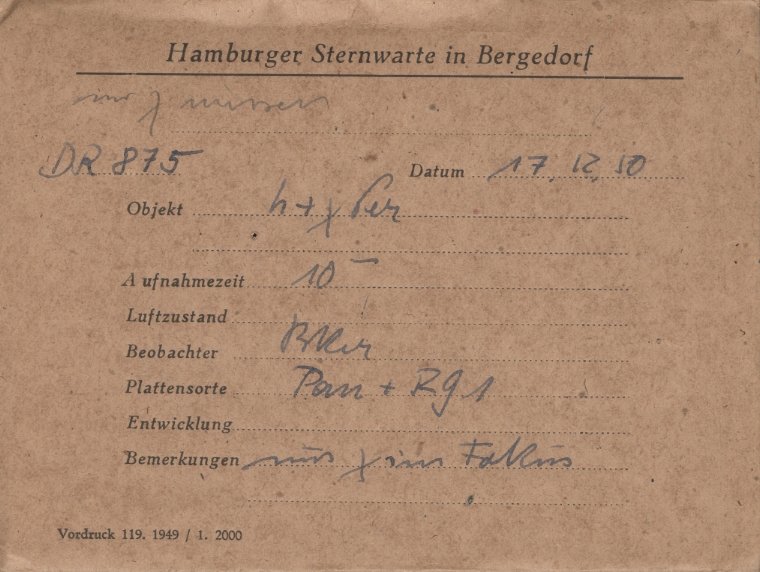 Hamburger Sternwarte in Bergedorf
nur χ messen
DR 875 Datum 17. 12. 50
Objekt h + χ Per
Aufnahmezeit 10 m
Luftzustand
Beobachter
Plattensorte Pan + Rg 1
Entwicklung
Bemerkungen nur χ im Fokus
Vordruck 119. 1949 / 1. 2000